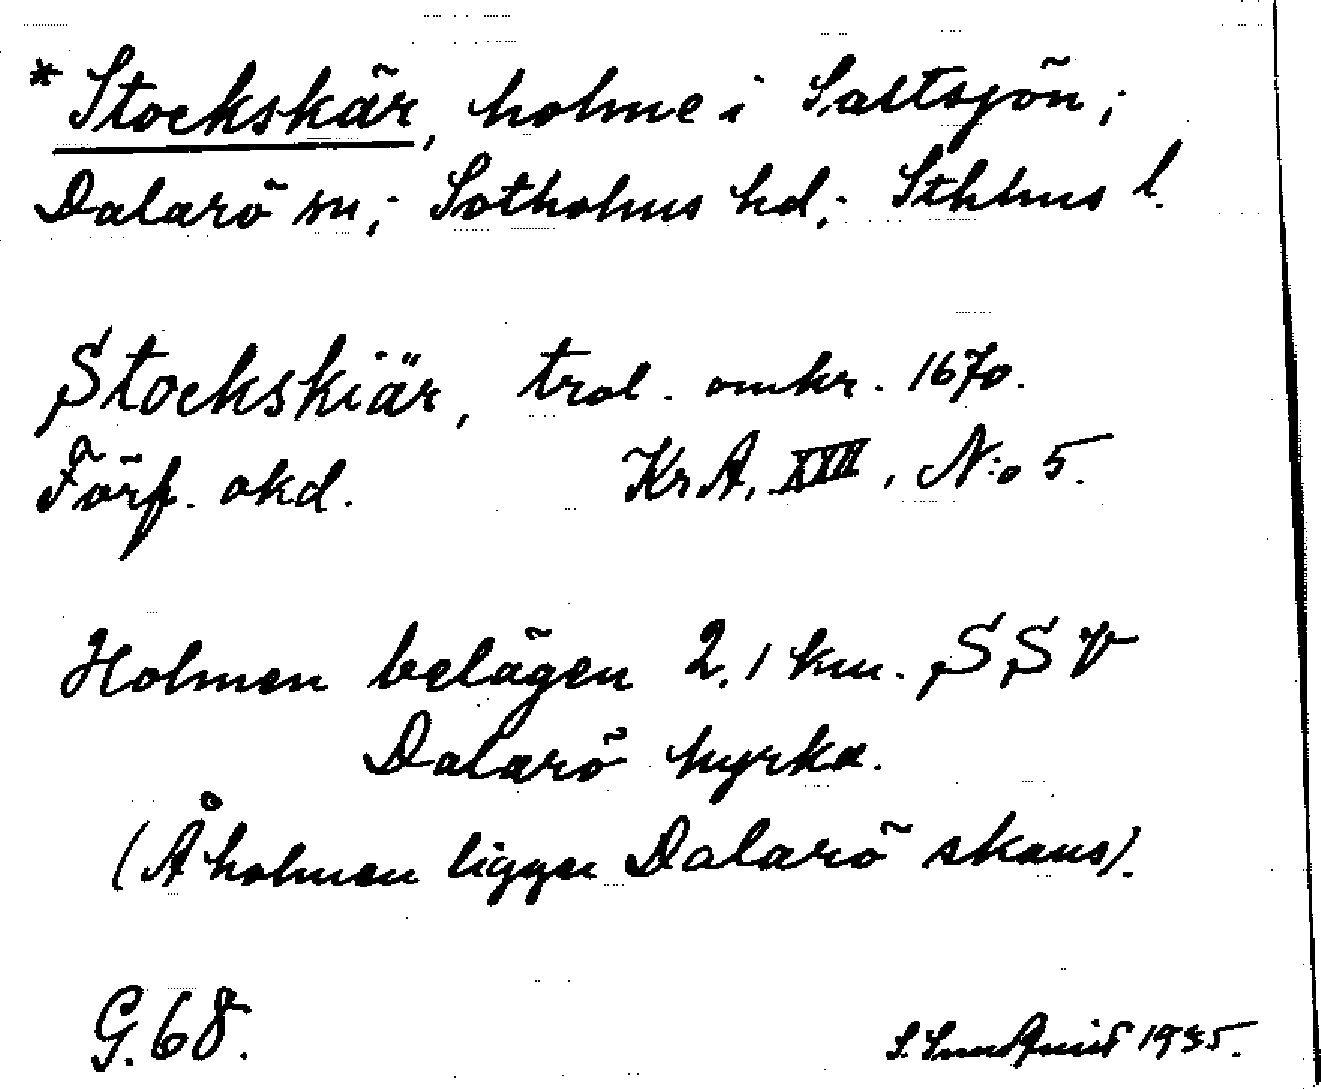 * Stockskär, holme i Saltsjön;
Dalarö sn; Sotholms hd; Sthlms l.
Stockskiär, trol. omkr. 1670.
Förf. okd. KrA. XVII, N:o 5.
Holmen belägen 2.1 km. SSV
Dalarö kyrka.
(Å holmen ligger Dalarö skans).
G.68.
S. Lundquist 1935.